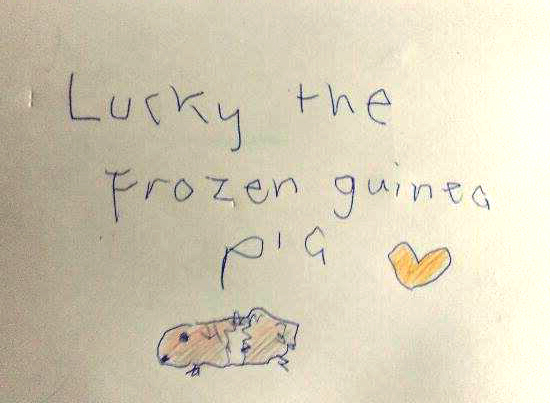 Lucky the
Frozen guinea
pig